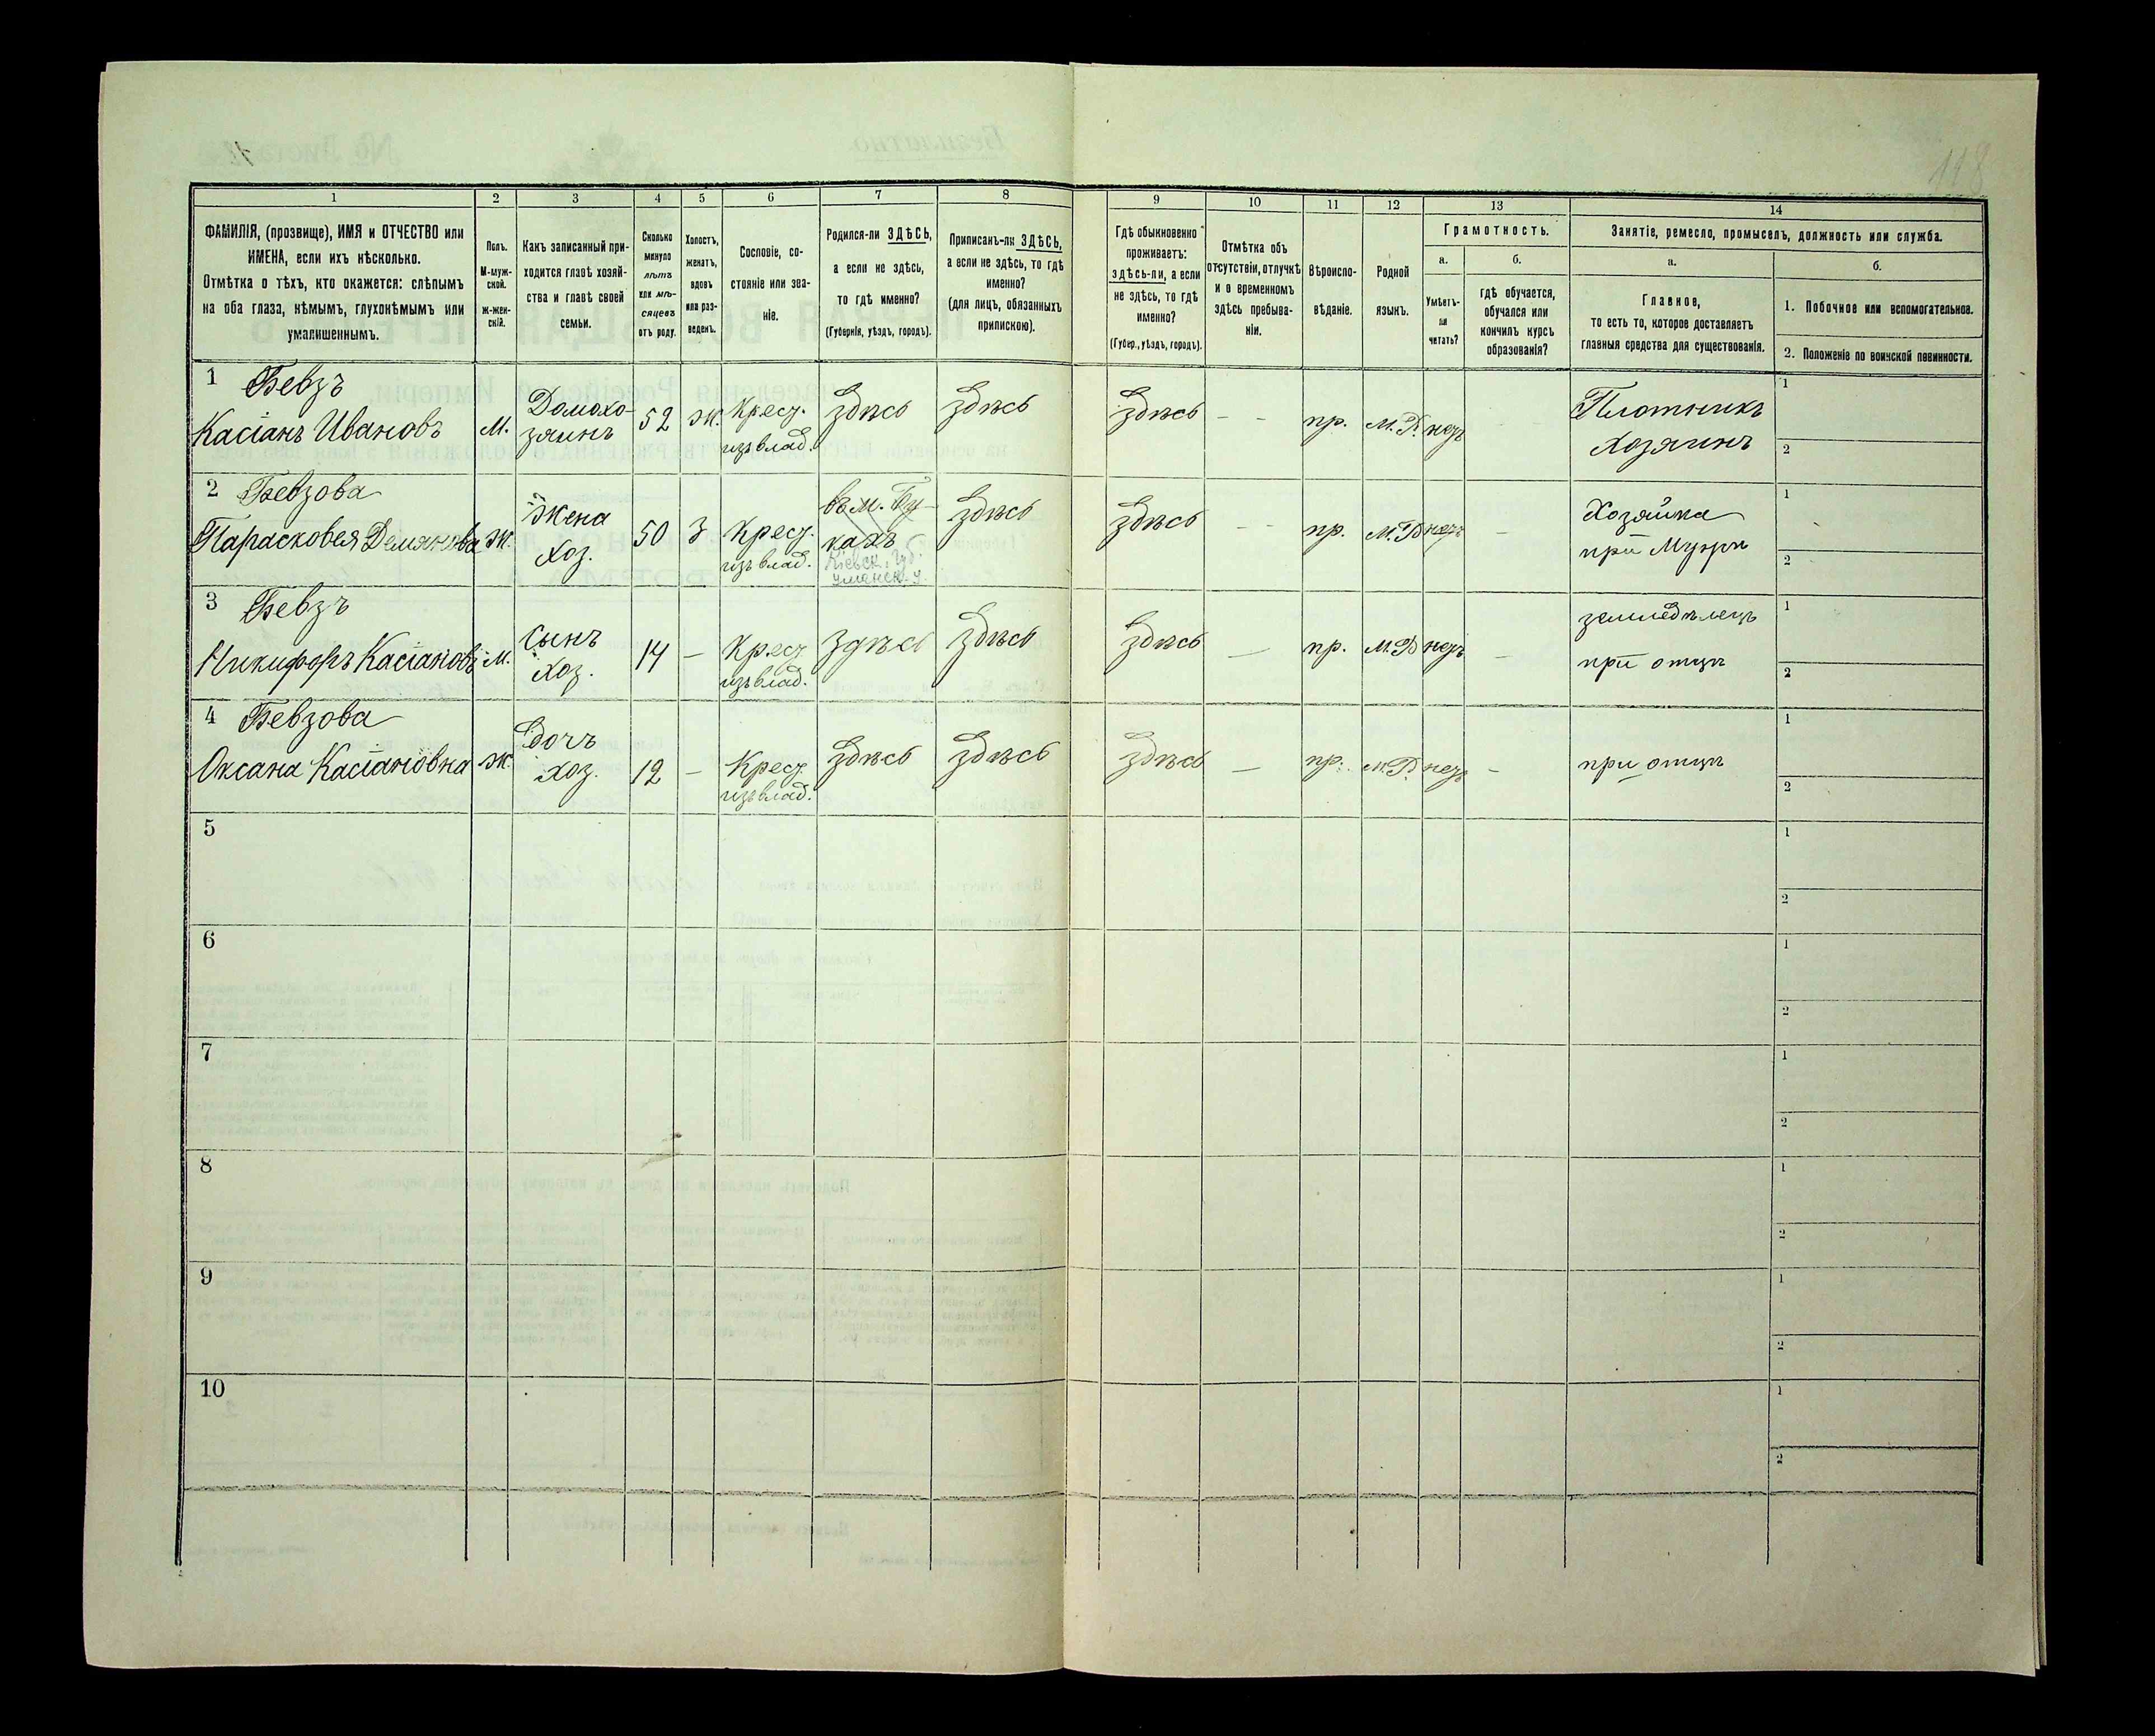 118
1
2
3
4
5
6
7
8
9
10
11
12
13
14
ФАМИЛІЯ, (прозвище), ИМЯ и ОТЧЕСТВО или
ИМЕНА, если ихъ нѣсколько.
Отмѣтка о тѣхъ, кто окажется: слѣпымъ
на оба глаза, нѣмымъ, глухонѣмымъ или
умалишеннымъ.
Полъ.
М-муж-
ской.
ж-жен-
скій.
Какъ записанный при-
ходится главѣ хозяй-
ства и главѣ своей
семьи.
Сколько
минуло
лѣтъ
или мѣ-
сяцевъ
отъ роду.
Холостъ,
женатъ,
вдовъ
или раз-
веденъ.
Сословіе, со-
стояніе или зва-
ніе.
Родился-ли ЗДѢСЬ,
а если не здѣсь,
то гдѣ именно?
(Губернія, уѣздъ, городъ).
Приписанъ-ли ЗДѢСЬ,
а если не здѣсь, то гдѣ
именно?
(для лицъ, обязанныхъ
припискою).
Гдѣ обыкновенно
проживаетъ:
здѣсь-ли, а если
не здѣсь, то гдѣ
именно?
(Губер., уѣздъ, городъ).
Отмѣтка объ
отсутствіи, отлучкѣ
и о временномъ
здѣсь пребыва-
ніи.
Вѣроиспо-
вѣданіе.
Родной
языкъ.
Грамотность.
а.
Умѣетъ-
ли
читать?
б.
гдѣ обучается,
обучался или
кончилъ курсъ
образованія?
Занятіе, ремесло, промыселъ, должность или служба.
а.
Главное,
то есть то, которое доставляетъ
главныя средства для существованія.
б.
1. Побочное или вспомогательное.
2. Положеніе по воинской повинности.
1 Бевзъ
Касіанъ Ивановъ
м.
Домохо-
зяинъ
52
ж.
Крест.
изъ влад.
Здѣсь
Здѣсь
Здѣсь
- -
пр.
М.Р.
негъ
Плотникъ
Хозяинъ
1
2
2 Бевзова
Парасковея Демянова
ж.
Жена
Хоз.
50
З
Крест.
изъ влад.
въ м. Бу-
кахъ
Кіевск. Губ.
уманск. у.
Здѣсь
Здѣсь
- -
пр.
М.Р
нетъ
-
Хозяйка
при Мужѣ
1
2
3 Бевзъ
Никифоръ Касіановъ
м.
Сынъ
Хоз.
14
-
Крест
изъ влад.
Здѣсь
Здѣсь
Здѣсь
-
пр.
М.Р
нетъ
-
земледѣлецъ
при отцѣ
1
2
4 Бевзова
Оксана Касіановна
ж.
Дочъ
хоз.
12
-
Крест
изъ влад.
Здѣсь
Здѣсь
Здѣсь
-
пр.
М.Р.
нетъ
-
при отцѣ
1
2
5
1
2
6
1
2
7
1
2
8
1
2
9
1
2
10
1
2